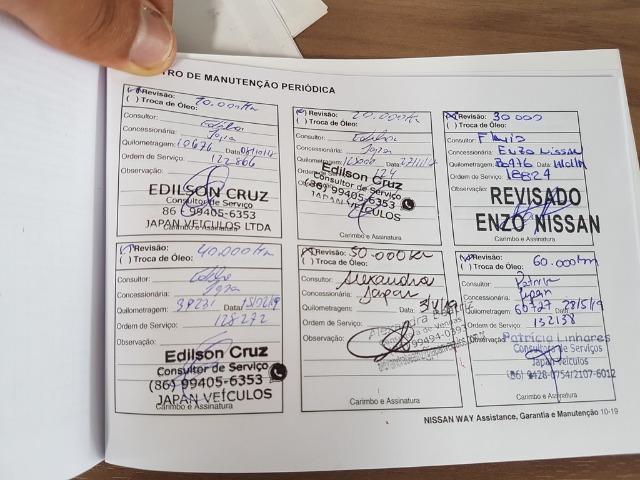 TRO DE MANUTENÇÃO PERIÓDICA
Revisão: 10.000Km
( ) Troca de Óleo:
Consultor: Edilson
Concessionária: Japan
Quilometragem: 10676 Data:
Ordem de Serviço: 122866
Observação:
EDILSON CRUZ
Consultor de Serviço
86 99405-6353
JAPAN VEÍCULOS LTDA
Carimbo e Assinatura
Revisão: 20.000Km
( ) Troca de Óleo:
Consultor: Edilson
Concessionária: Japan
Quilometragem: Data:
Ordem de Serviço:
Observação:
Edilson Cruz
Consultor de Serviço
(86) 99405-6353
JAPAN VEÍCULOS
Carimbo e Assinatura
Revisão: 30 000
( ) Troca de Óleo:
Consultor: Flavio
Concessionária: Enzo Nissan
Quilometragem: 30476 Data:
Ordem de Serviço: 18824
Observação:
REVISADO
ENZO NISSAN
Carimbo e Assinatura
Revisão: 40.000Km
( ) Troca de Óleo:
Consultor: Edilson
Concessionária: Japan
Quilometragem: 39231 Data: 15/02/19
Ordem de Serviço: 128272
Observação:
Edilson Cruz
Consultor de Serviço
(86) 99405-6353
JAPAN VEÍCULOS
Carimbo e Assinatura
Revisão: 50.000Km
( ) Troca de Óleo:
Consultor: Alexandra
Concessionária: Japan
Quilometragem: Data: 3/4/19
Ordem de Serviço:
Observação:
Carimbo e Assinatura
Revisão: 60.000Km
( ) Troca de Óleo:
Consultor: Patricia
Concessionária: Japan
Quilometragem: 60727 Data: 28/5/19
Ordem de Serviço: 132138
Observação:
Patrícia Linhares
Consultora de Serviços
Japan Veículos
(86) 9428-0754/2107-6012
Carimbo e Assinatura
NISSAN WAY Assistance, Garantia e Manutenção 10-19